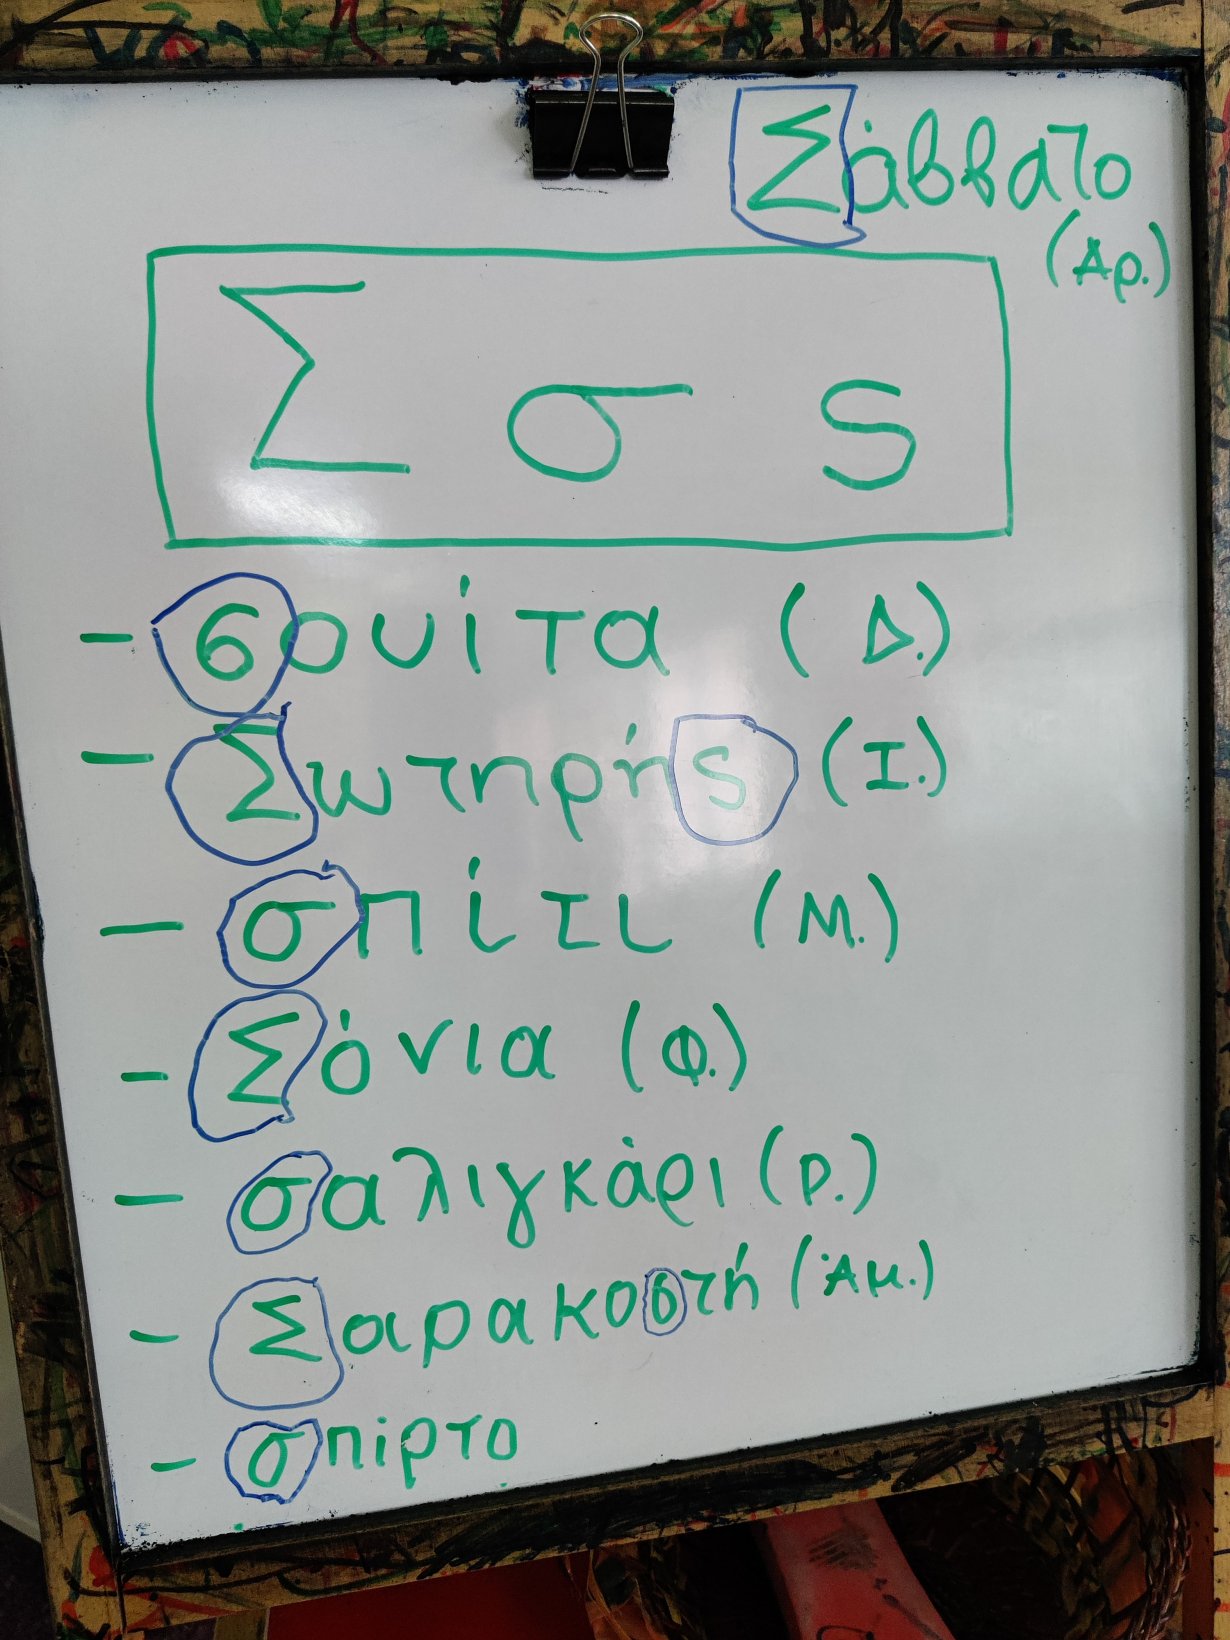 Σάββατο
(Αρ.)
Σ σ ς
- σουίτα (Δ.)
- Σωτηρής (Ι.)
- σπίτι (Μ.)
- Σόνια (Φ.)
- σαλιγκάρι (Ρ.)
- Σαρακοστή (Αμ.)
- σπίρτο